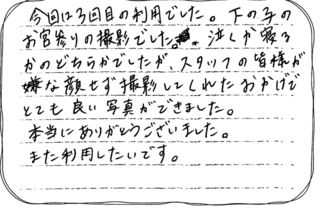 今回は3回目の利用でした。下の子の
お宮参りの撮影でした。泣くか寝る
かのどちらかでしたが、スタッフの皆様が
嫌な顔せず撮影してくれたおかげで
とても良い写真ができました。
本当にありがとうございました。
また利用したいです。